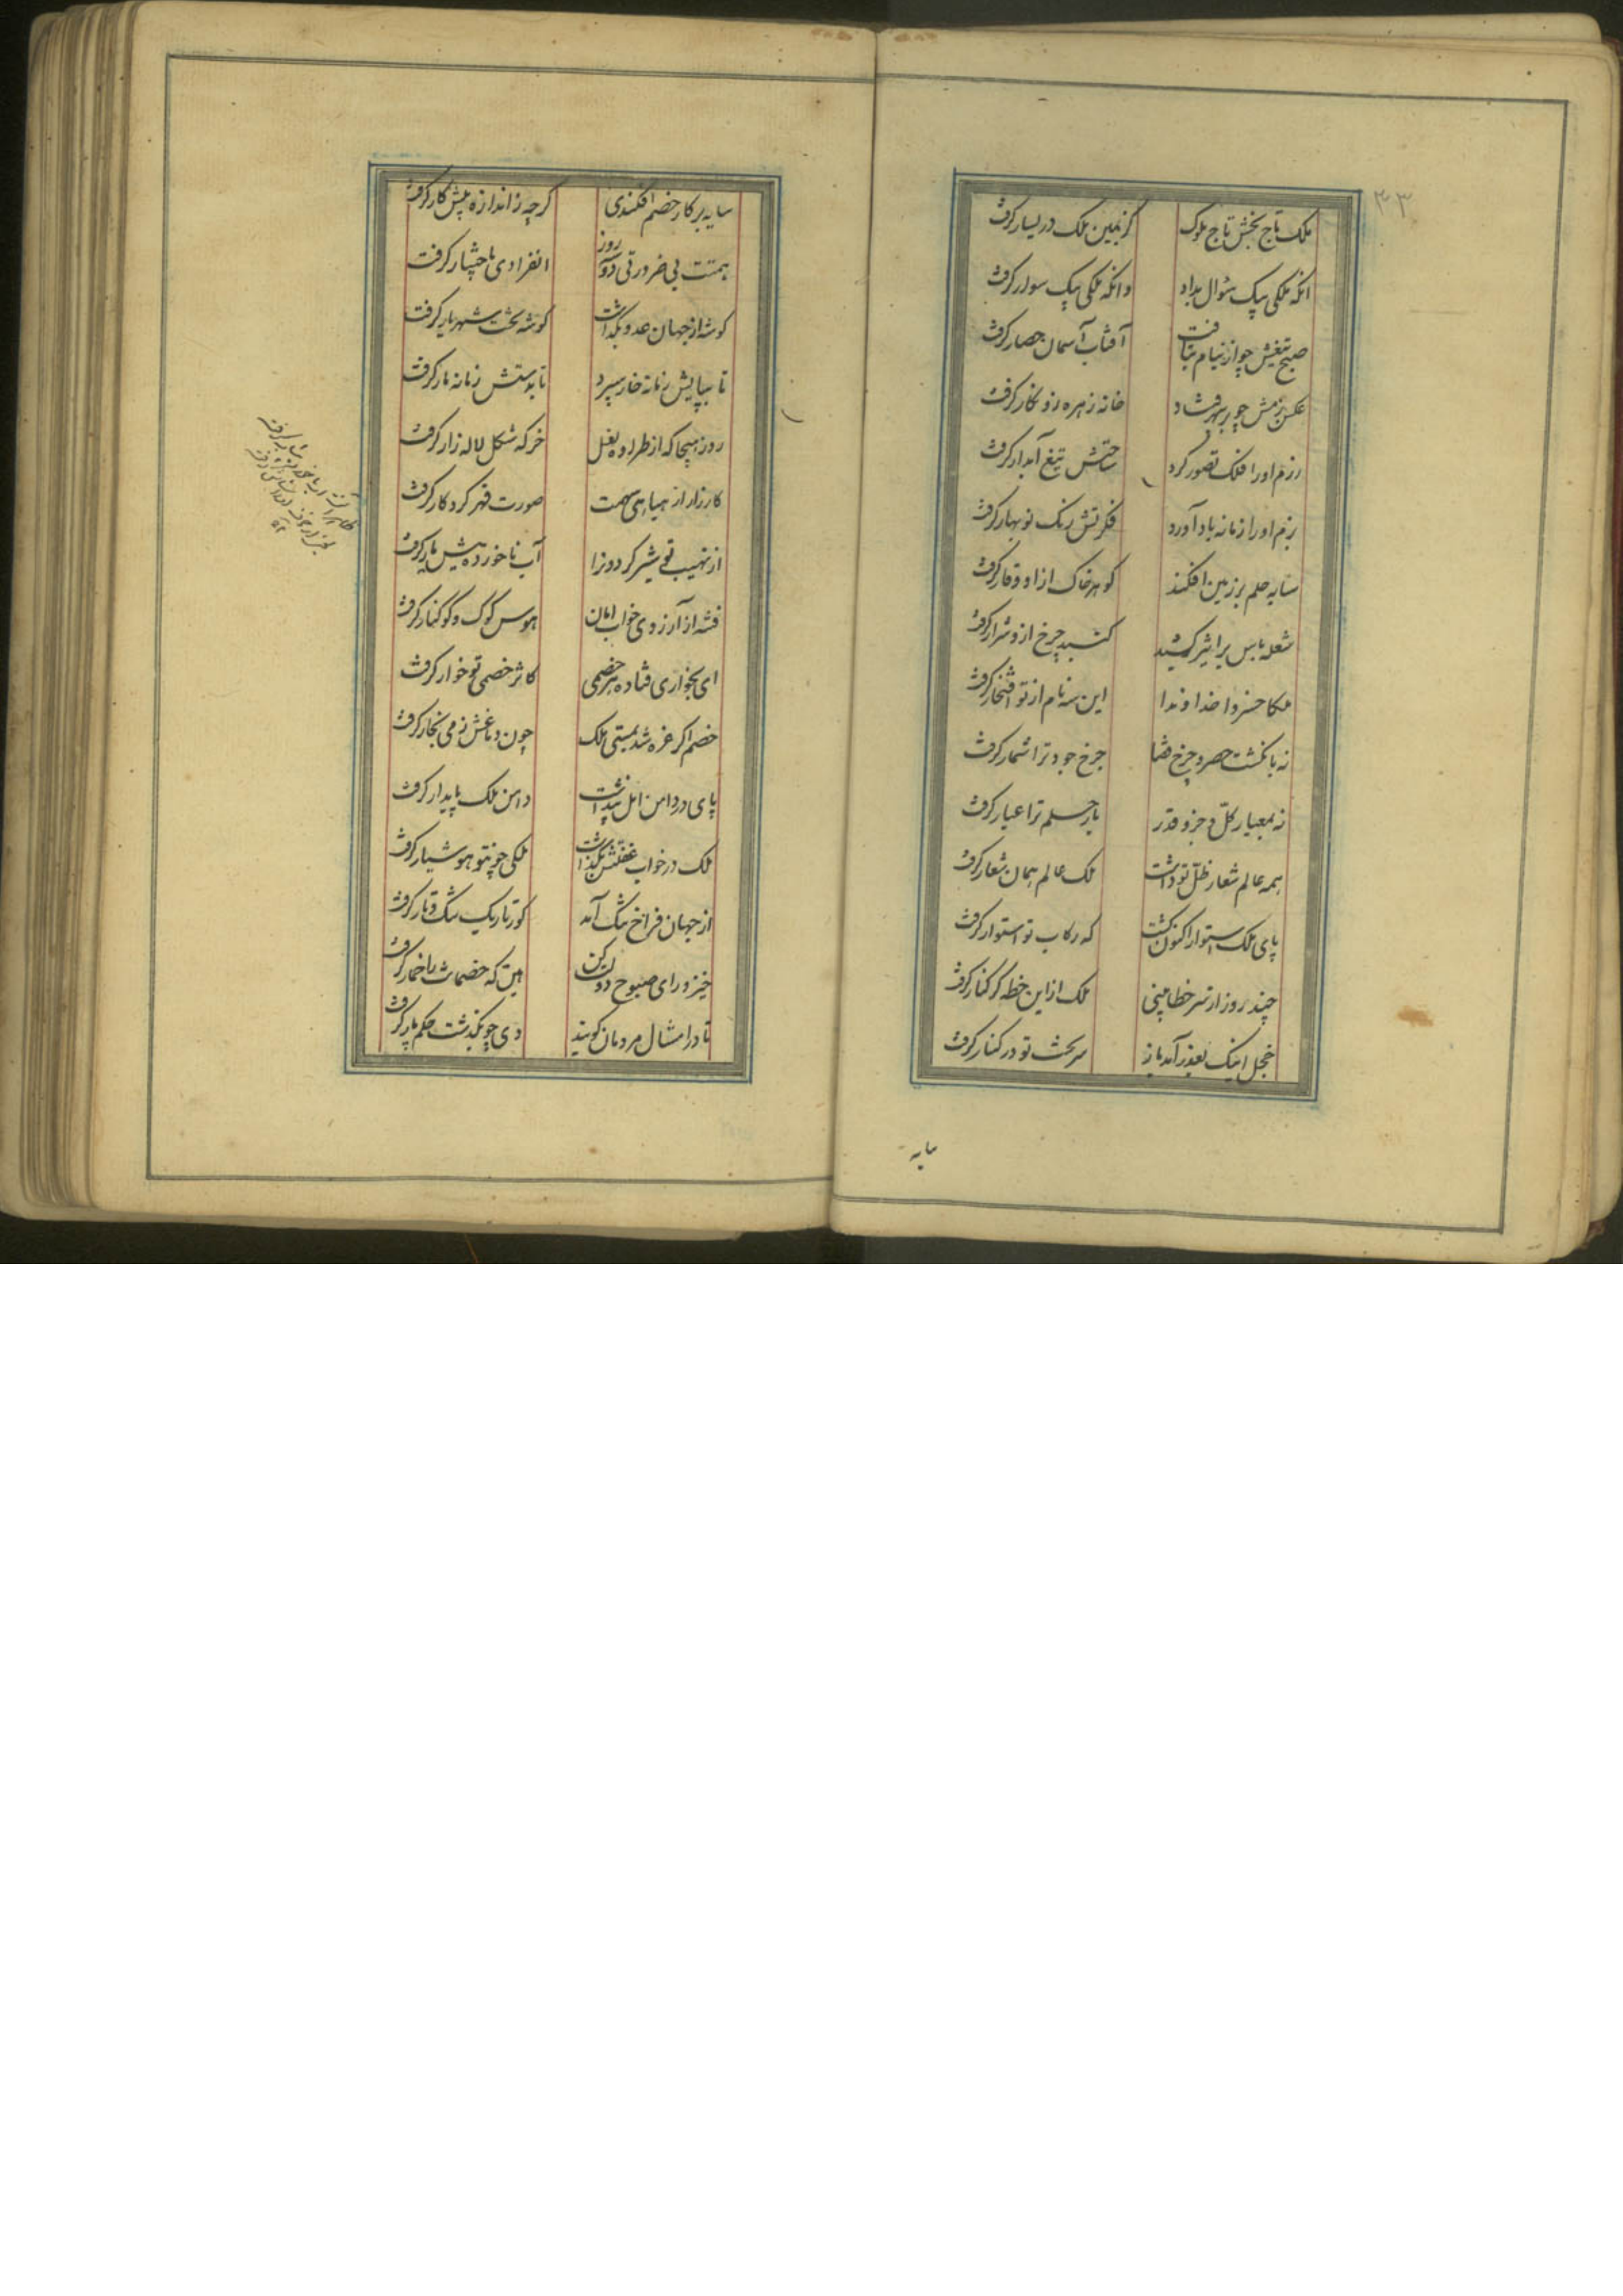 ۳۳
ملک تاج بخش تاج ملوک کز یمین ملک در یسار گرفت
انکه ملکی بیک سؤال بداد وانکه ملکی بیک سوار گرفت
صبح تیغش چو از نیام بتافت آفتاب آسمان حصار گرفت
عکس بزمش چو بر سپهر فتاد خانه زهره زو نکار گرفت
رزم اورا فلک تصور کرد ساحتش تیغ آبدار گرفت
بزم اورا زمانه یاد آورد فکرتش رنک نوبهار گرفت
سایه حلم بر زمین افکند کوهر خاک ازاو وقار گرفت
شعله باس بر اثیر کشید کنبد چرخ ازو شرار گرفت
ملکا خسروا خداوندا این سه نام از تو افتخار گرفت
نه بانکشت حصر و چرخ قضا چرخ جود ترا شمار گرفت
نه بمعیار کل و جزو قدر بار حلم ترا عیار گرفت
همه عالم شعار ظل تو داشت ملک عالم همان شعار گرفت
پای ملک استوار اکنون گشت که رکاب تو استوار گرفت
چند روز از سر خطا بینی ملک ازاین خطه گر کنار گرفت
خجل اینک بعذر آمد باز سر بخت تو در کنار گرفت
سایه
سایه بر کار خصم افکندی کرچه ز اندازه بیش کار گرفت
همتت بی ضرورتی دو روز انفرادی باختیار گرفت
کوشه از جهان عدو بگذاشت کوشه تخت شهریار گرفت
تا بپایش زمانه خار سپرد تا بدستش زمانه مار گرفت
روز هیجا که از طراده لعل خرکه شکل لاله زار گرفت
کارزار از هیاهی سهمت صورت قهر کردکار گرفت
از نهیب تو شیر کردون را آب ناخورده پیش یار گرفت
فتنه از آرزوی خواب امان هوس کوک و کوکنار گرفت
ای بخواری فتاده هر خصمی کاثر خصمی تو خوار گرفت
خصم اکر غره شد بمستی ملک چون دماغش ز می بخار گرفت
پای در دامن امل پنداشت دامن ملک پایدار گرفت
ملک در خواب غفلتش بگذاشت ملکی چونتو هوشیار گرفت
از جهان فراخ تنک آمد کور تاریک تنک و تار گرفت
خیز و رای صبوح دولت کن هین که خصمات را خمار گرفت
تا در امثال مردمان کویند دی چو بگذشت حکم پار گرفت